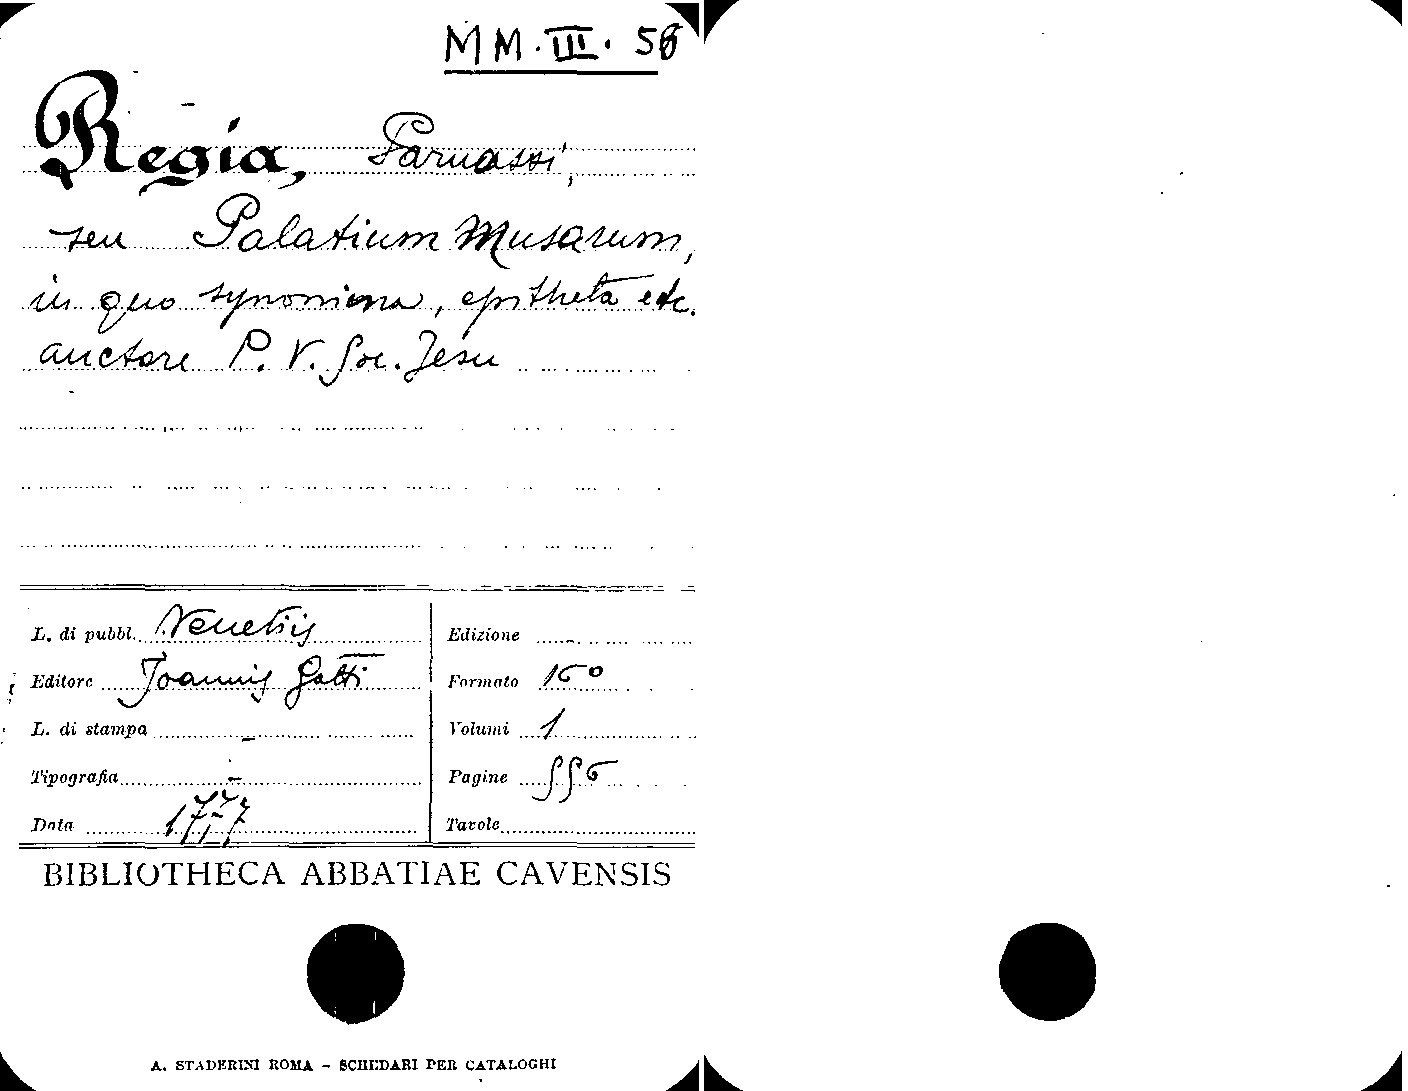 MM.III. 58
Regia, Parnassi,
seu Palatium Musarum,
in quo synonima, epitheta etc.
auctore P. V. Soc. Jesu
L. di pubbl. Venetiis
Edizione
Editore Joannis Gatti
Formato 16º
L. di stampa –
Volumi 1
Tipografia –
Pagine 556
Data 1777
Tavole
BIBLIOTHECA ABBATIAE CAVENSIS
A. STADERINI ROMA - SCHEDARI PER CATALOGHI